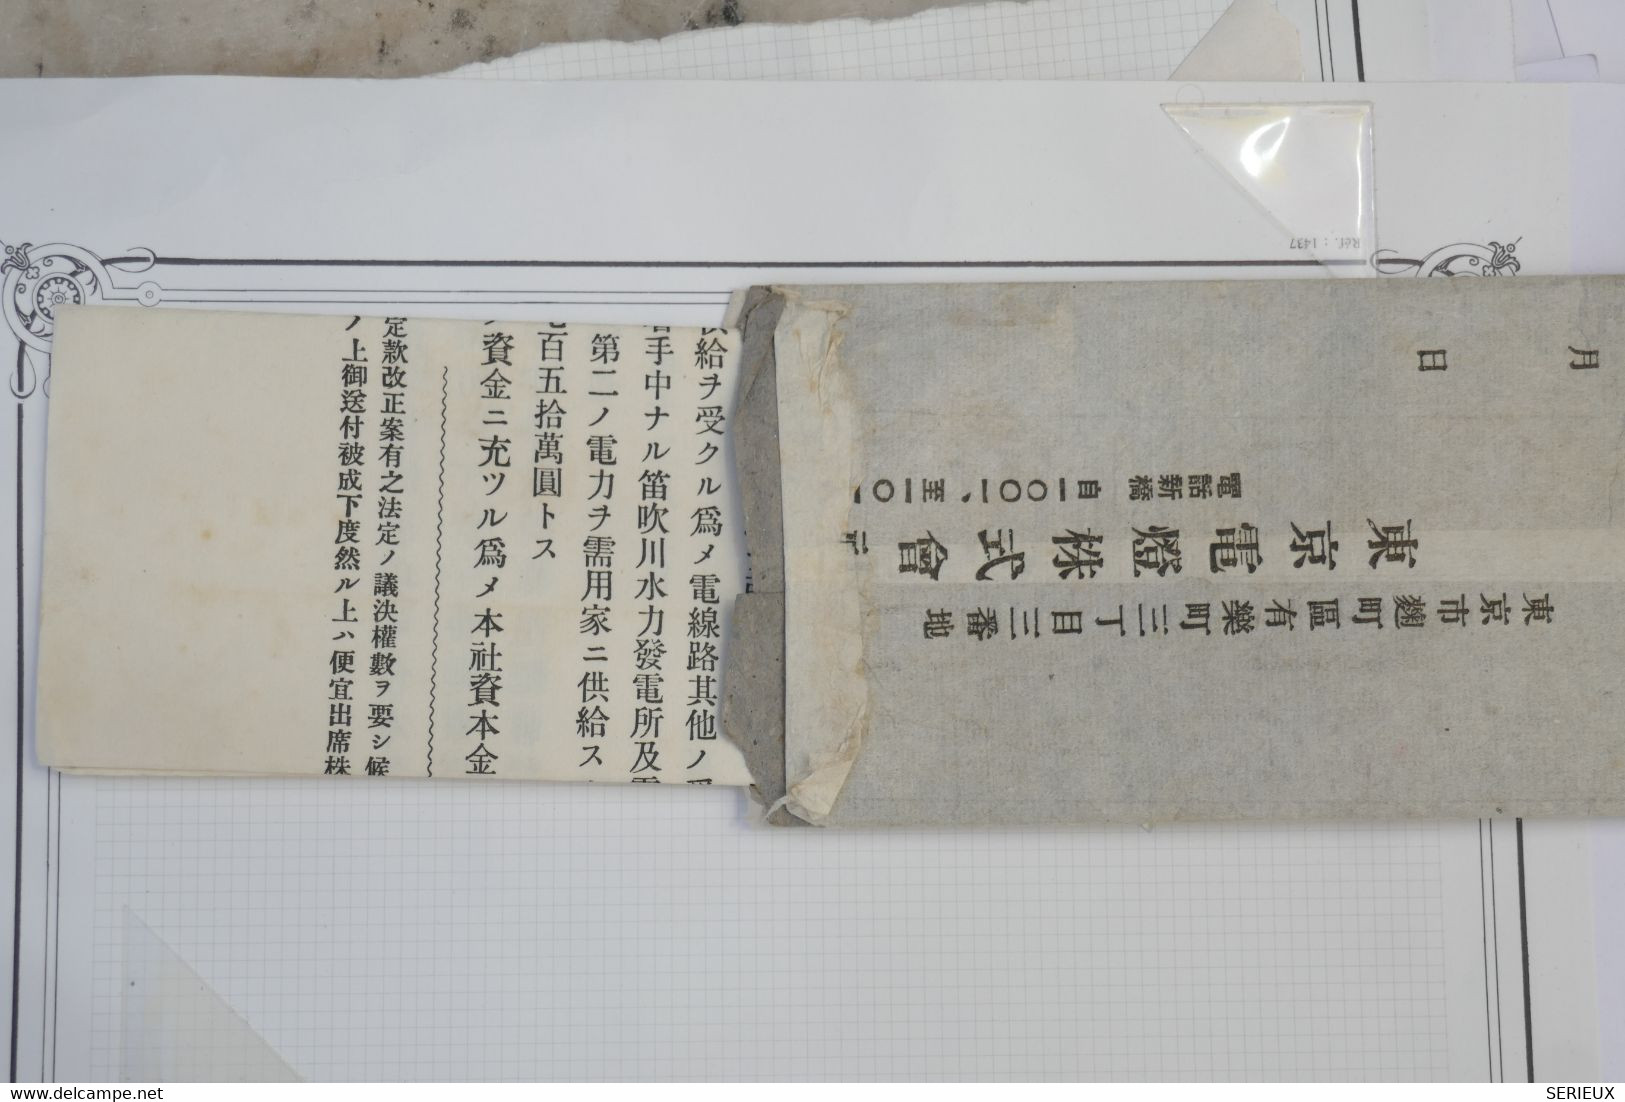 給ヲ受クル爲メ電線路其他ノ
手中ナル笛吹川水力發電所及
第二ノ電力ヲ需用家ニ供給ス
百五拾萬圓トス
資金ニ充ツル爲メ本社資本金
定款改正案有之法定ノ議決權數ヲ要シ候
ノ上御送付被成下度然ル上ハ便宜出席株
月
日
東京市麴町區有樂町三丁目三番地
東京電燈株式會
電話新橋 自一〇〇一、至一〇一
Réf. : 1437
SERIEUX